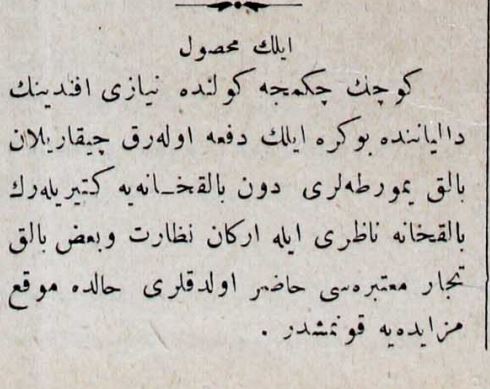 ایلك محصول
كوچك چكمجه كولنده نیازی افندینك
دالیاننده بوكره ایلك دفعه اوله‌رق چیقاریلان
بالق یمورطه‌لری دون بالقخـانه‌یه كتیریله‌رك
بالقخانه ناظری ایله اركان نظارت وبعض بالق
تجار معتبره‌سی حاضر اولدقلری حالده موقع
مزایده‌یه قونمشدر .